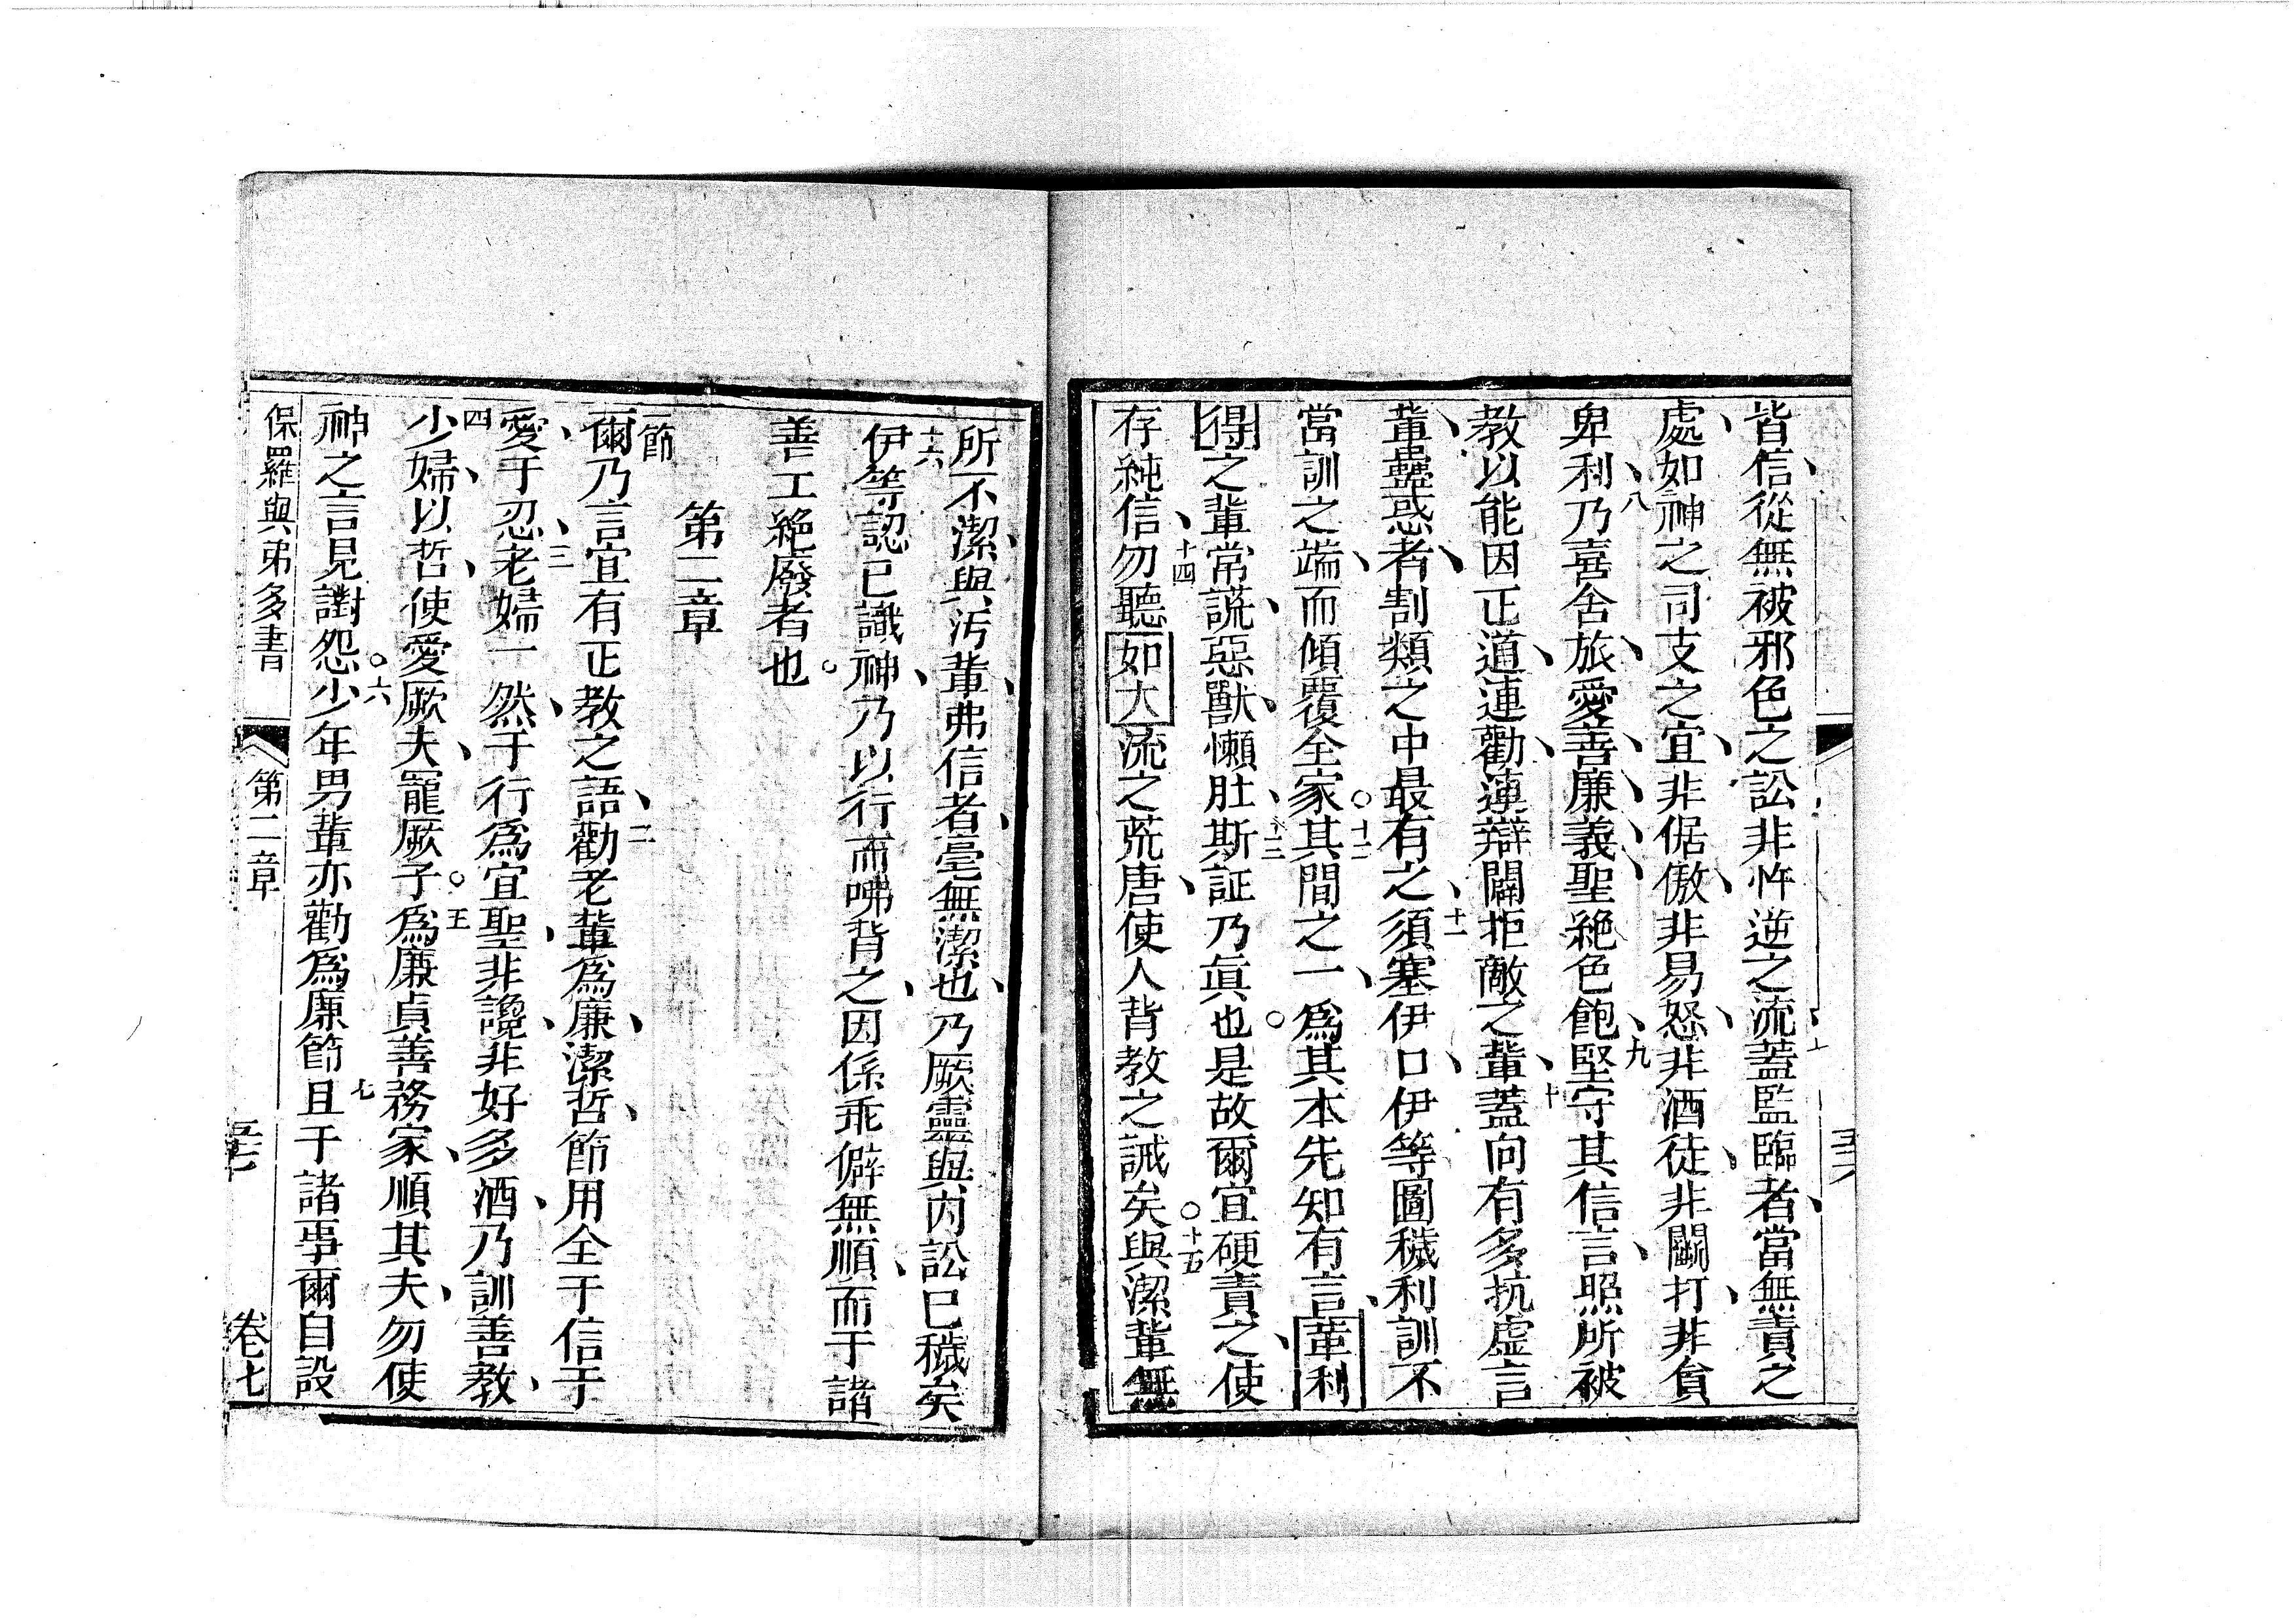 皆信從無被邪色之訟非忤逆之流蓋監臨者當無責之
處如神之司支之宜非倨傲非易怒非酒徒非鬭打非貟
卑利八乃喜舍旅愛善廉義聖絶色飽九堅守其信言照所被
教以能因正道連勸連辯闢拒敵之輩十蓋向有多抗虛言
輩蠱惑者割類之中最有之十一須塞伊口伊等圖穢利訓不
當訓之端而傾覆全家○十二其間之一爲其本先知有言革利
得之輩常謊惡獸懶肚十三斯証乃眞也○是故爾宜硬責之使
存純信十四勿聽如大流之荒唐使人背教之誡矣○十五與潔輩無
所不潔與汚輩弗信者毫無潔也乃厥靈與丙訟已穢矣
十六伊等認已識神乃以行而咈背之因係乖僻無順而于諸
善工絶廢者也○
第二章
一節爾乃言宜有正教之語二勸老輩爲廉潔哲節用全于信于
愛于忍三老婦一然于行爲宜聖非讒非好多酒乃訓善教
四少婦以哲使愛厥夫寵厥子○王爲廉貞善務家順其夫勿使
神之言見讟怨○六少年男輩亦勸爲廉節七且于諸事爾自設
保羅與弟多書 第二章 卷七